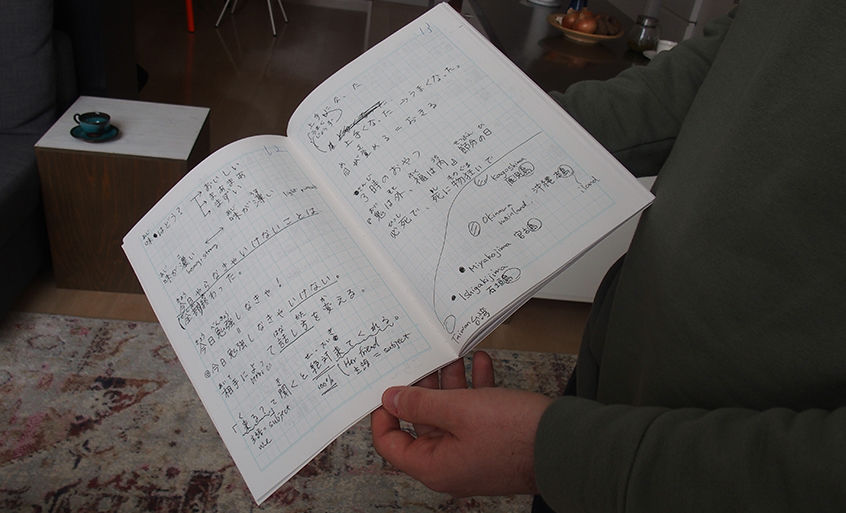 12
味はどう?
おいしい
まあまあ
まずい
味が薄い
味が濃い
今日やらなきゃいけないことは
全部終わった。
今日勉強しなきゃ!
@今日勉強しなきゃいけない。
相手によって話し方を変える。
「来る?」て聞くと絶対来てくれる。
100%
Her friend
主語 = subject
主語 = subject
me
13
上手になった
上手くなった→うまくなった。
目が覚める = おきる
3時のおやつ
鬼は外、福は内
節分の日
必死で、死に物狂いで
Kagoshima
鹿児島
沖縄本島
island
Okinawa
mainland
Miyakojima
宮古島
Ishigakijima
石垣島
Taiwan 台湾